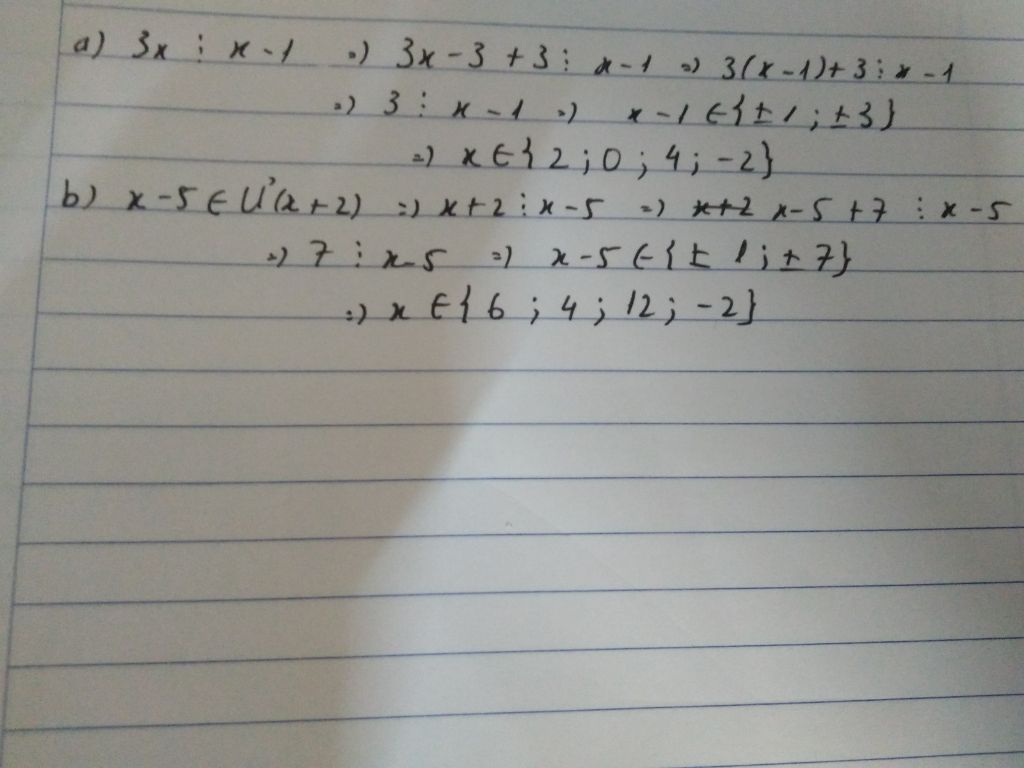 a) 3x ⋮ x - 1 => 3x - 3 + 3 ⋮ x - 1 => 3(x - 1) + 3 ⋮ x - 1
=> 3 ⋮ x - 1 => x - 1 ∈ {± 1 ; ± 3}
=> x ∈ { 2 ; 0 ; 4 ; -2}
b) x - 5 ∈ Ư(x + 2) => x + 2 ⋮ x - 5 => x+2 x - 5 + 7 ⋮ x - 5
=> 7 ⋮ x - 5 => x - 5 ∈ {± 1 ; ± 7}
=> x ∈ { 6 ; 4 ; 12 ; -2}